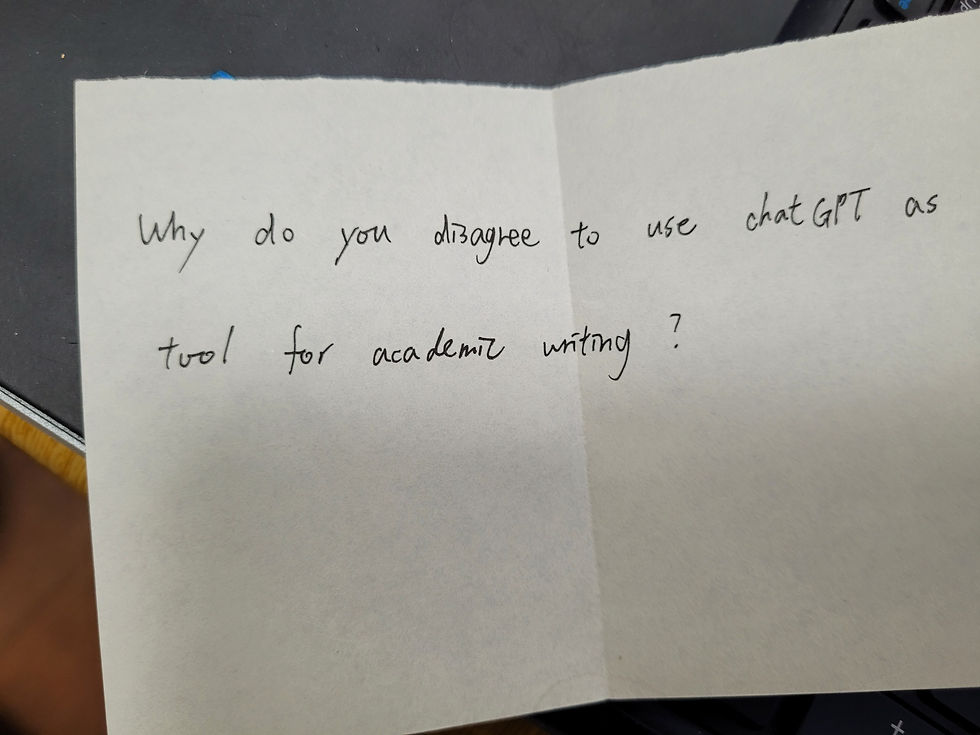 Why do you disagree to use chatGPT as
tool for academic writing ?